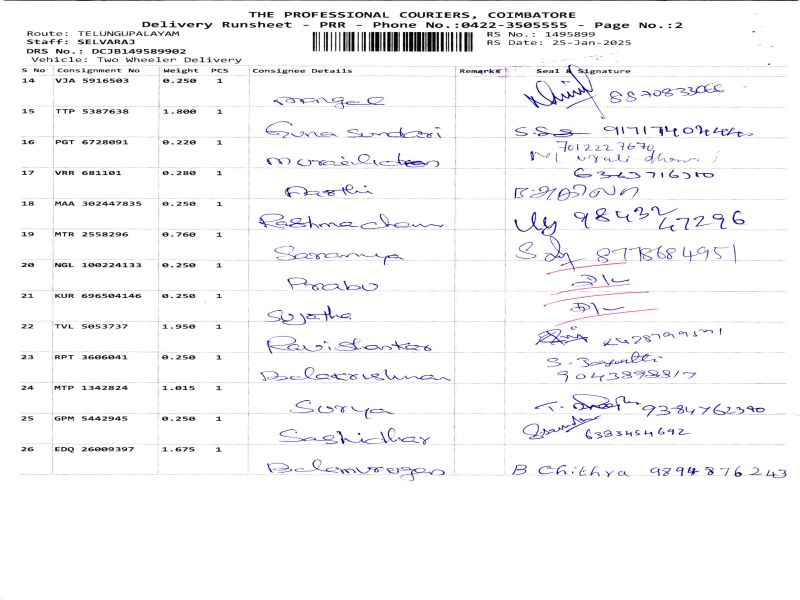 THE PROFESSIONAL COURIERS, COIMBATORE
Delivery Runsheet - PRR - Phone No.:0422-3505555 - Page No.:2
Route: TELUNGUPALAYAM RS No.: 1495899
Staff: SELVARAJ RS Date: 25-Jan-2025
DRS No.: DCJB149589902
Vehicle: Two Wheeler Delivery
S No Consignment No Weight PCS Consignee Details Remarks Seal & Signature
14 VJA 5916503 0.250 1
8870833066
15 TTP 5387638 1.800 1
Guna Sundari
16 PGT 6728091 0.220 1 7012227670
17 VRR 681101 0.280 1
Aarthi
18 MAA 302447835 0.250 1 98432
47296
19 MTR 2558296 0.760 1
Saramya 8778684951
20 NGL 100224133 0.250 1
Prabu
21 KUR 696504146 0.250 1
Sujatha
22 TVL 5053737 1.950 1
Ravishankar
23 RPT 3606041 0.250 1
Balakrishnan 9043898817
24 MTP 1342824 1.015 1
Surya 9384762390
25 GPM 5442945 0.250 1
Sashidhar 6383454692
26 EDQ 26009397 1.675 1
Balamurugan B Chithra 9894876243